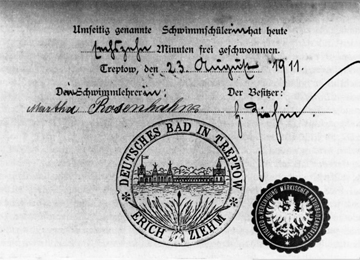 Umseitig genannte Schwimmschülerin hat heute
sechszehn Minuten frei geschwommen.
Treptow, den 23. August 1911.
Die Schwimmlehrerin: Der Besitzer:
Martha Rosenhahn
DEUTSCHES BAD IN TREPTOW
ERICH ZIEHM